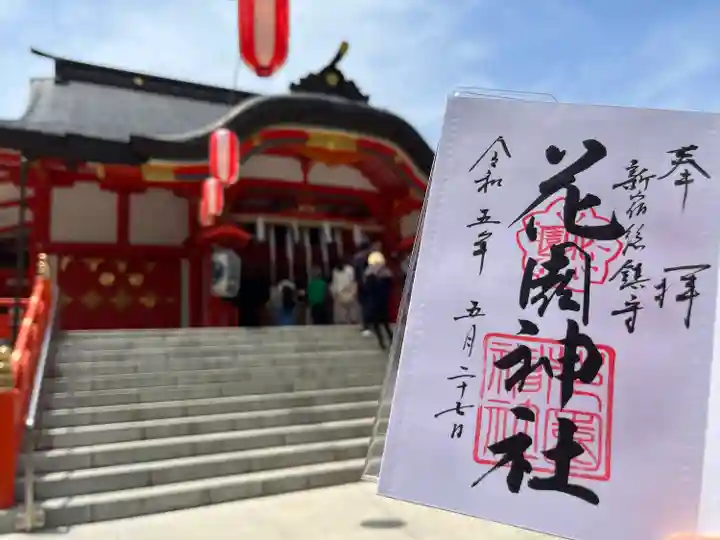 奉拝
新宿総鎮守
花園神社
令和五年
五月二十七日